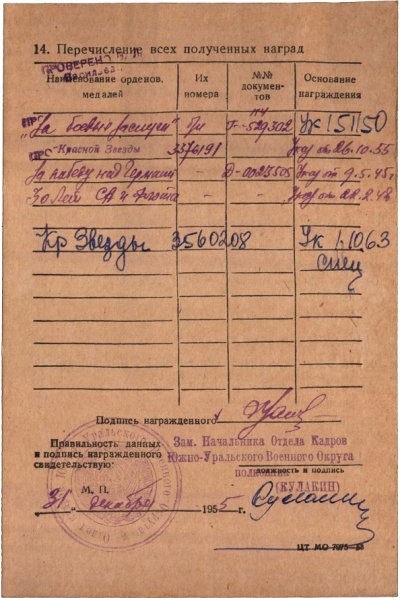 14. Перечисление всех полученных наград
ПРОВЕРЕНО
Наименование орденов, медалей Их номера №№ документов Основание награждения
"За боевые заслуги" Г-529302 Ук 1/51/50
Красной Звезды 3376191 Указ от 26.10.55
За победу над Германией Д-0023505 Указ от 9.5.45г.
30 лет СА и Флота Указ от 22.2.48
Кр Звезды 3560208 Ук 1/10,63
спец
Подпись награжденного
Правильность данных и подпись награжденного свидетельствую:
Зам. Начальника Отдела Кадров
Южно-Уральского Военного Округа
полковник
должность и подпись
(КУЛАКИН)
М. П.
31 декабря 1955 г.
ЦТ МО